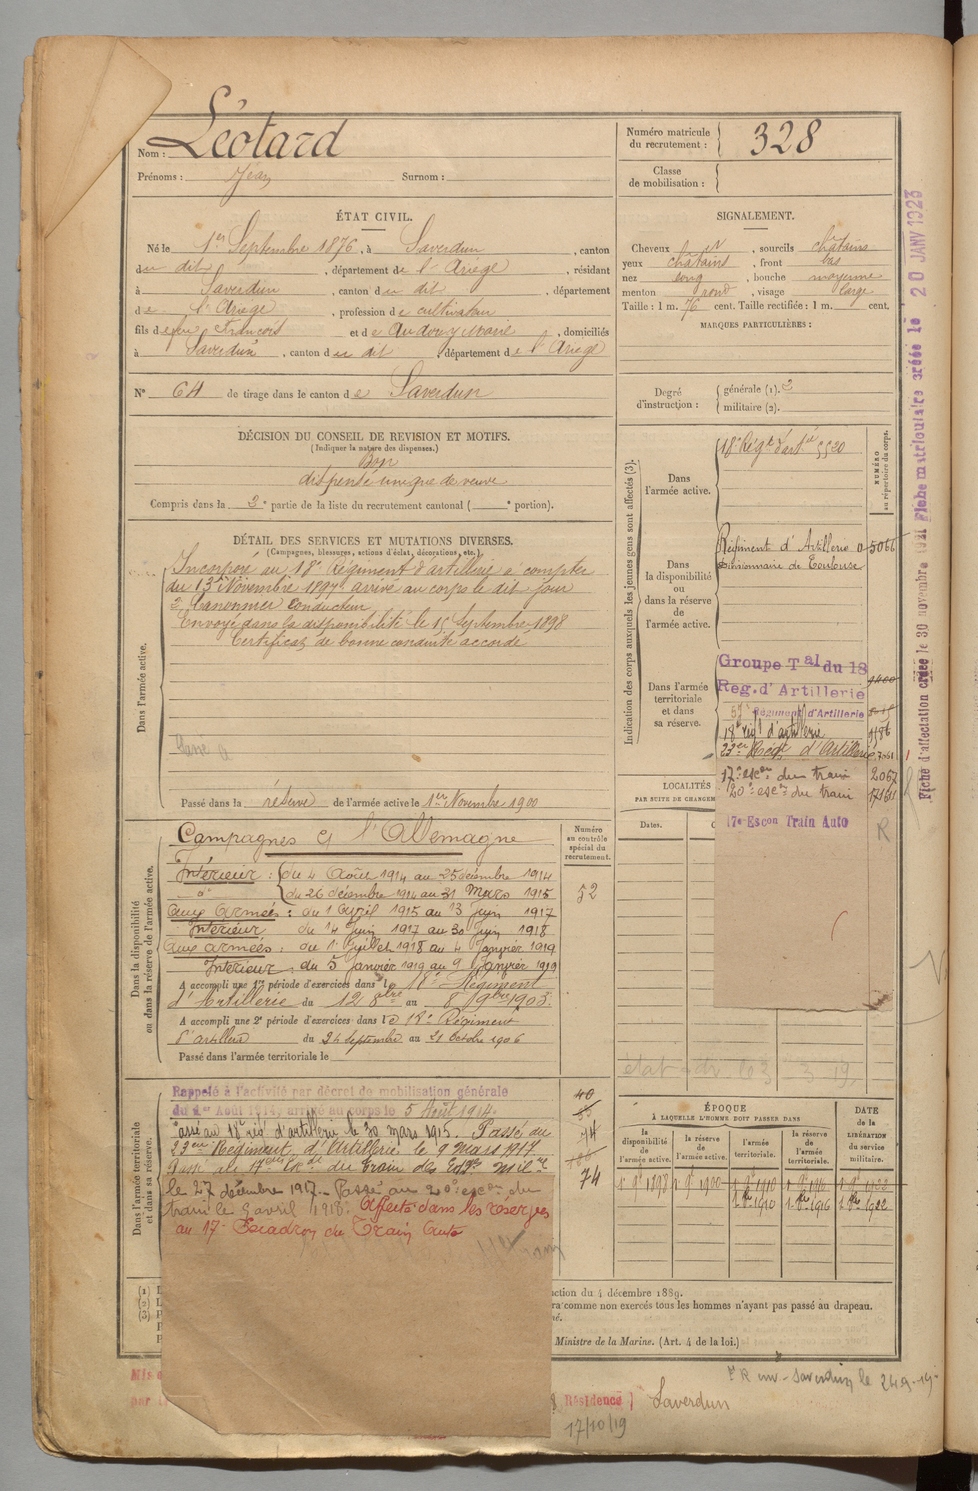 Nom : Léotard
Prénoms : Jean Surnom :
Numéro matricule du recrutement : 328
Classe de mobilisation :
ÉTAT CIVIL.
Né le 1er Septembre 1876, à Saverdun, canton
du dit, département de l'Ariège, résidant
à Saverdun, canton du dit, département
de l'Ariège, profession de cultivateur
fils de feu François et de Audouy Marie, domiciliés
à Saverdun, canton du dit, département de l'Ariège
N° 64 de tirage dans le canton de Saverdun
SIGNALEMENT.
Cheveux , sourcils châtains
yeux châtains, front bas
nez long, bouche moyenne
menton rond, visage large
Taille : 1 m. 76 cent. Taille rectifiée : 1 m. cent.
MARQUES PARTICULIÈRES :
Degré d'instruction : générale (1). 3
militaire (2).
DÉCISION DU CONSEIL DE REVISION ET MOTIFS.
(Indiquer la nature des dispenses.)
Bon
dispensé unique de veuve
Compris dans la 3e partie de la liste du recrutement cantonal ( e portion).
DÉTAIL DES SERVICES ET MUTATIONS DIVERSES.
(Campagnes, blessures, actions d'éclat, décorations, etc.)
Dans l'armée active.
Incorporé au 18e Régiment d'artillerie à compter
du 13 Novembre 1897 arrivé au corps le dit jour
2e Canonnier Conducteur
Envoyé dans la disponibilité le 15 Septembre 1898
Certificat de bonne conduite accordé
Passé dans la réserve de l'armée active le 1er Novembre 1900
Indication des corps auxquels les jeunes gens sont affectés (3).
NUMÉRO au répertoire du corps.
Dans l'armée active.
18e Régt d'artie 5520
Dans la disponibilité ou dans la réserve de l'armée active.
Régiment d'Artillerie 5066
Divisionnaire de Toulouse
Dans l'armée territoriale et dans sa réserve.
Groupe Tal du 18
Reg. d'Artillerie
57 Régiment d'Artillerie
18e régt d'artillerie 1186
23eme Régt d'Artillerie
17e escon du train 2067
20e escon du train
17e Escon Train Auto
R
LOCALITÉS
PAR SUITE DE CHANGEM
Dates.
Dans la disponibilité ou dans la réserve de l'armée active.
Numéro au contrôle spécial du recrutement.
52
Campagnes c/ l'Allemagne
Intérieur : du 4 Août 1914 au 25 décembre 1914
d° du 26 décembre 1914 au 31 Mars 1915
aux armées : du 1 Avril 1915 au 13 Juin 1917
Intérieur du 14 Juin 1917 au 30 Juin 1918
aux armées : du 1 Juillet 1918 au 4 Janvier 1919
Intérieur, du 5 Janvier 1919 au 9 Janvier 1919
A accompli une 1re période d'exercices dans le 18e Régiment
d'Artillerie du 12 8bre au 8 9bre 1903.
A accompli une 2e période d'exercices dans le 18e Régiment
d'artillerie du 24 septembre au 21 Octobre 1906
Passé dans l'armée territoriale le
Dans l'armée territoriale et dans sa réserve.
Rappelé à l'activité par décret de mobilisation générale
du 1er Août 1914, arrivé au corps le 5 Août 1914.
Passé au 18e régt d'artillerie le 30 mars 1915. Passé au
23eme Régiment d'Artillerie le 9 Mars 1917
Passé au 17eme Escon du Train des Eqges Mil res
le 27 décembre 1917. Passé au 20e escon du
train le 9 avril 1918. Affecté dans les réserves
au 17e Escadron du Train Auto
40
74
74
ÉPOQUE
À LAQUELLE L'HOMME DOIT PASSER DANS
la disponibilité de l'armée active.
la réserve de l'armée active.
l'armée territoriale.
la réserve de l'armée territoriale.
DATE DE LA LIBÉRATION du service militaire.
1 9bre 1898 1 9bre 1900 1 9bre 1910 1 9bre 1916 1 9bre 1922
1 8bre 1910 1 8bre 1916 1 8bre 1922
(1)
(2)
(3)
ction du 4 décembre 1889.
ra comme non exercés tous les hommes n'ayant pas passé au drapeau.
né.
Ministre de la Marine. (Art. 4 de la loi.)
Mis
par
Résidence Saverdun
17/10/19
Saverdun le 24 9 19
Fiche d'affectation créée le 30 novembre 1921 Fiche matriculaire créée le 20 JANV 1923